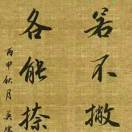 若不撇
各能捺
丙申秋月吴